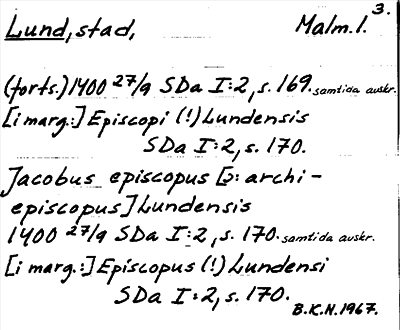 3.
Lund, stad, Malm.l.
(forts.) 1400 27/9 SDa I:2, s. 169. samtida avskr.
[i marg.:] Episcopi (!) Lundensis
SDa I:2, s. 170.
Jacobus episcopus [ɔ: archi-
episcopus] Lundensis
1400 27/9 SDa I:2, s. 170. samtida avskr.
[i marg.:] Episcopus (!) Lundensi
SDa I:2, s. 170.
B.K.N. 1967.